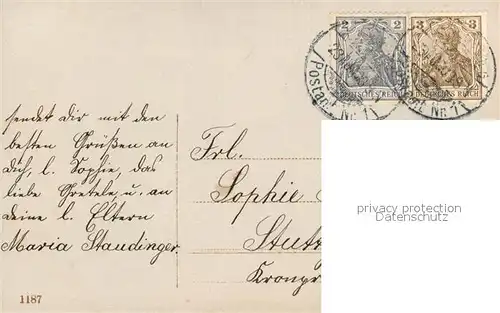 2 2
DEUTSCHES REICH
3 3
DEUTSCHES REICH
Postamt Nr. 1
Nr. 1
sendet Dir mit den
besten Grüßen an
Dich, l. Sophie, das
liebe Gretele u. an
deine l. Eltern
Maria Staudinger.
Frl.
Sophie
Stutt
Kronpr
privacy protection
Datenschutz
1187